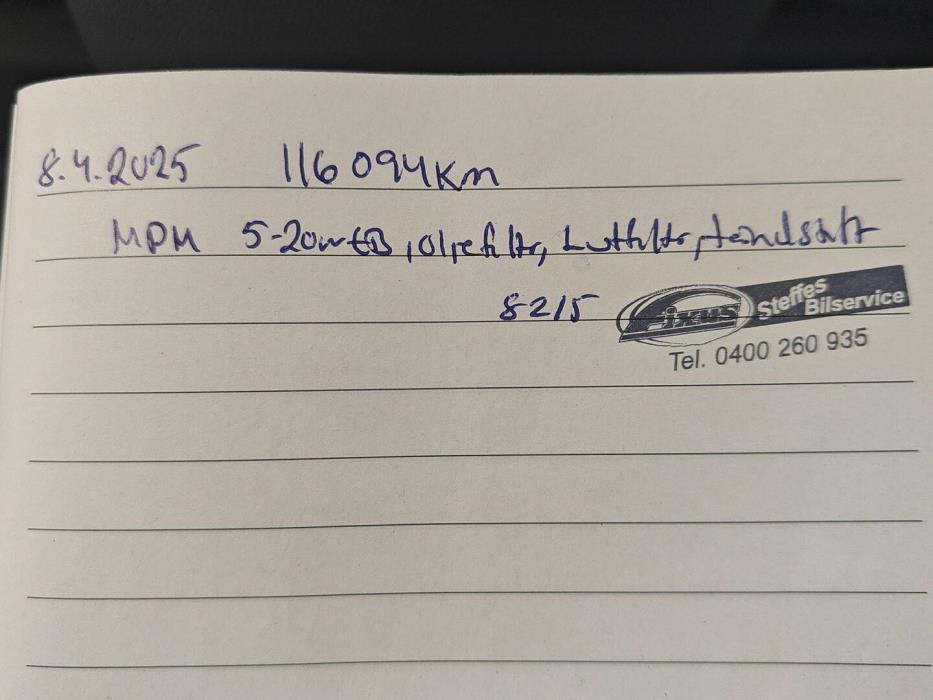 8.4.2025 116 094 km
MPM 5-20w EB, oljefilter, luftfilter, tändstift
8215
Fixus Steffes Bilservice
Tel. 0400 260 935